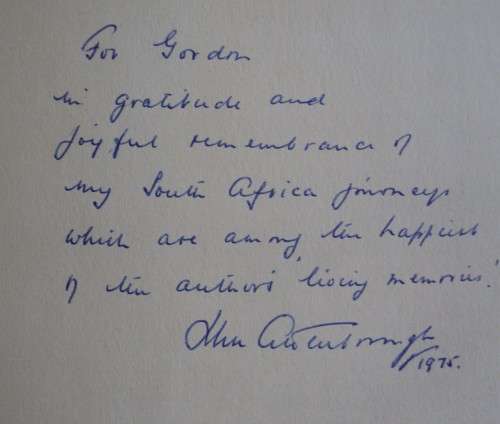 For Gordon
in gratitude and
joyful remembrance of
my South Africa journeys
which are among the happiest
of the author's 'living memories'.
John Attenborough
1975.